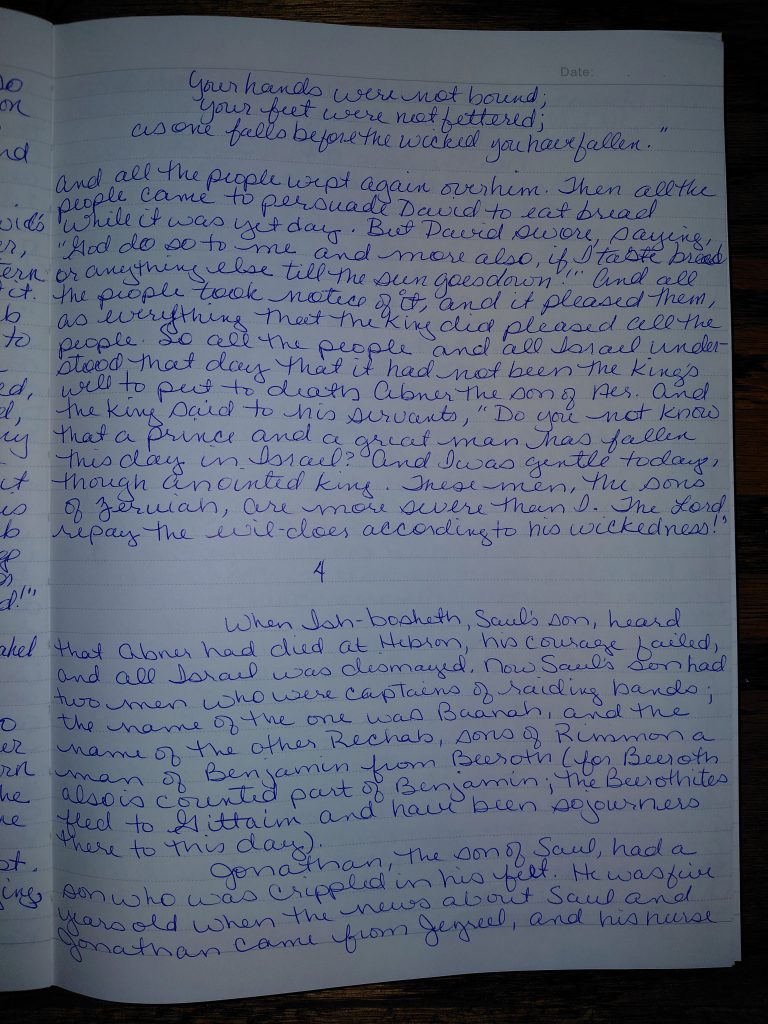 Date:
Your hands were not bound;
your feet were not fettered;
as one falls before the wicked you have fallen."
And all the people wept again over him. Then all the
people came to persuade David to eat bread
while it was yet day. But David swore, saying,
"God do so to me and more also, if I taste bread
or anything else till the sun goes down!" And all
the people took notice of it, and it pleased them,
as everything that the king did pleased all the
people. So all the people and all Israel under-
stood that day that it had not been the King's
will to put to death Abner the son of Ner. And
the king said to his servants, "Do you not know
that a prince and a great man has fallen
this day in Israel? And I was gentle today,
though anointed king. These men, the sons
of Zeruiah, are more severe than I. The Lord
repay the evil-doer according to his wickedness!"
4
When Ish-bosheth, Saul's son, heard
that Abner had died at Hebron, his courage failed,
and all Israel was dismayed. Now Saul's son had
two men who were captains of raiding bands;
the name of the one was Baanah, and the
name of the other Rechab, sons of Rimmon a
man of Benjamin from Beeroth (for Beeroth
also is counted part of Benjamin; the Beerothites
fled to Gittaim and have been sojourners
there to this day).
Jonathan, the son of Saul, had a
son who was crippled in his feet. He was five
years old when the news about Saul and
Jonathan came from Jezreel, and his nurse